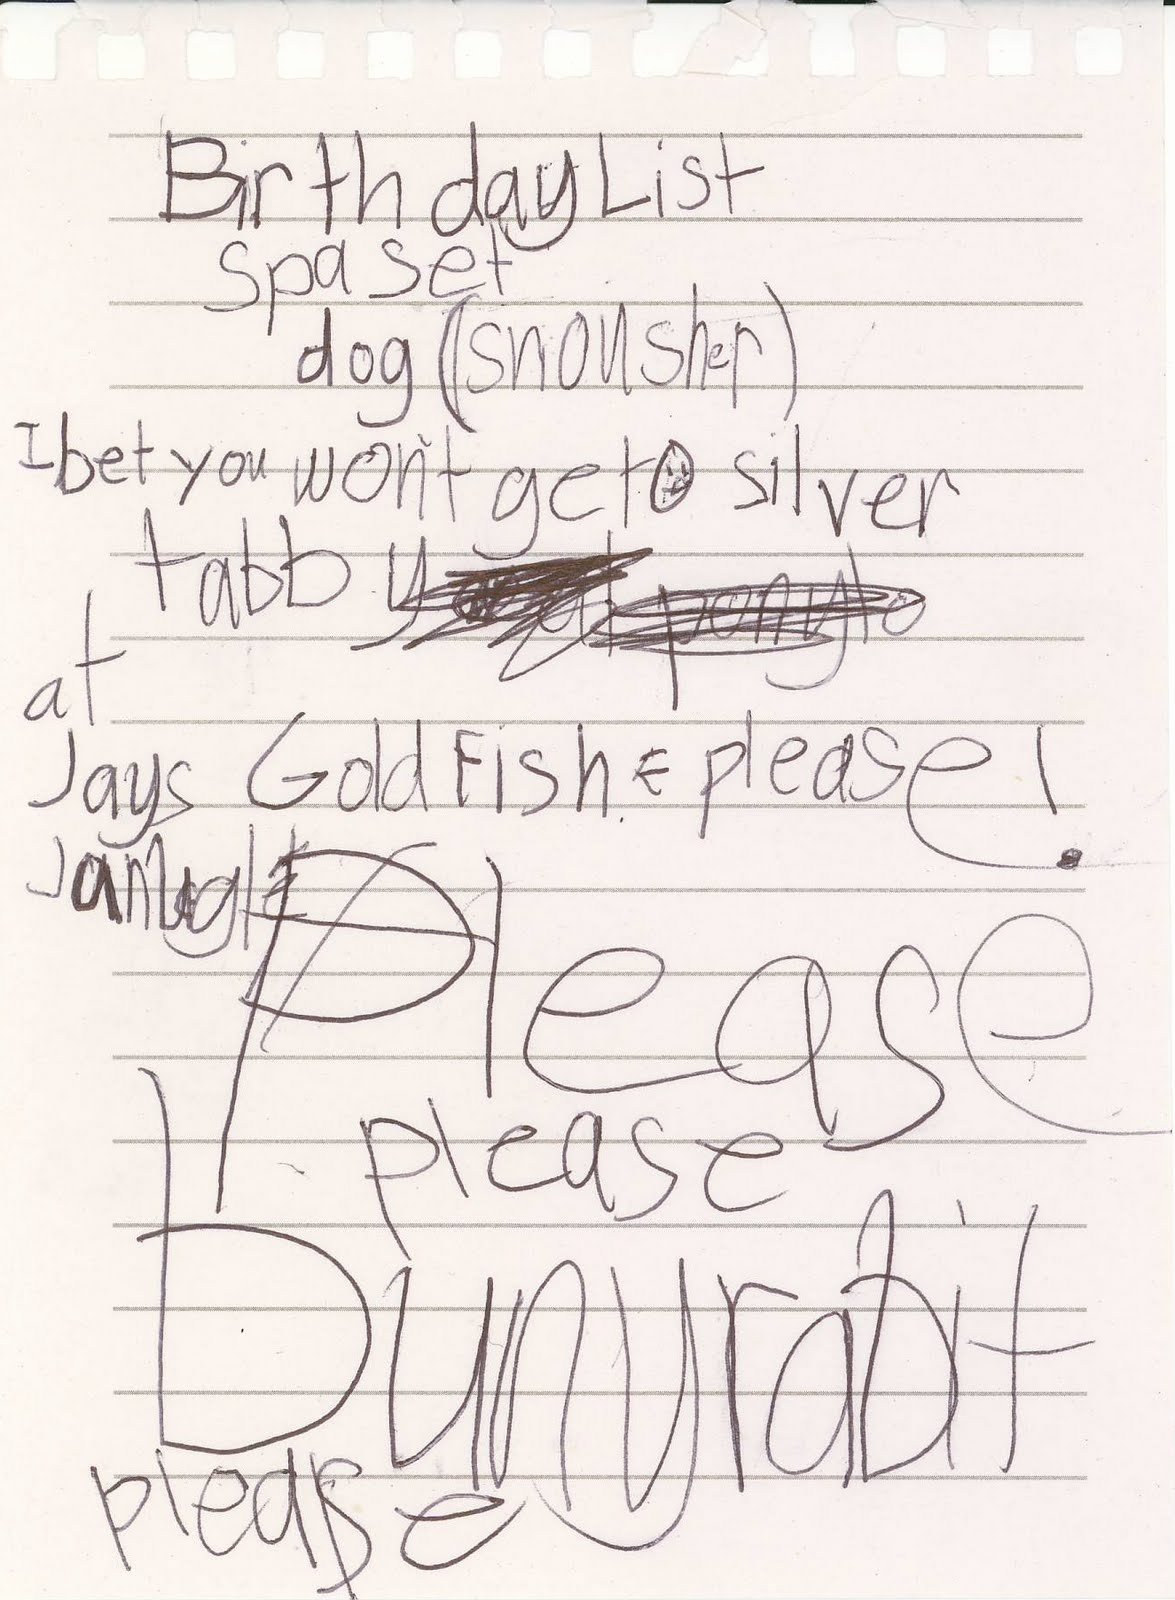 Birthday List
spa set
dog (snousher)
I bet you won't get silver
tabby
at
Jays Gold Fish & please!
Please
please
bunyrabit
please